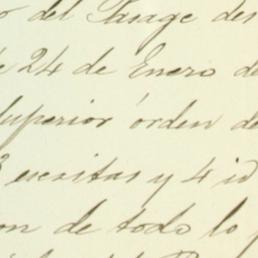 del Pasage des
24 de Enero de
Superior órden de
escritas y 4 id
on de todo lo